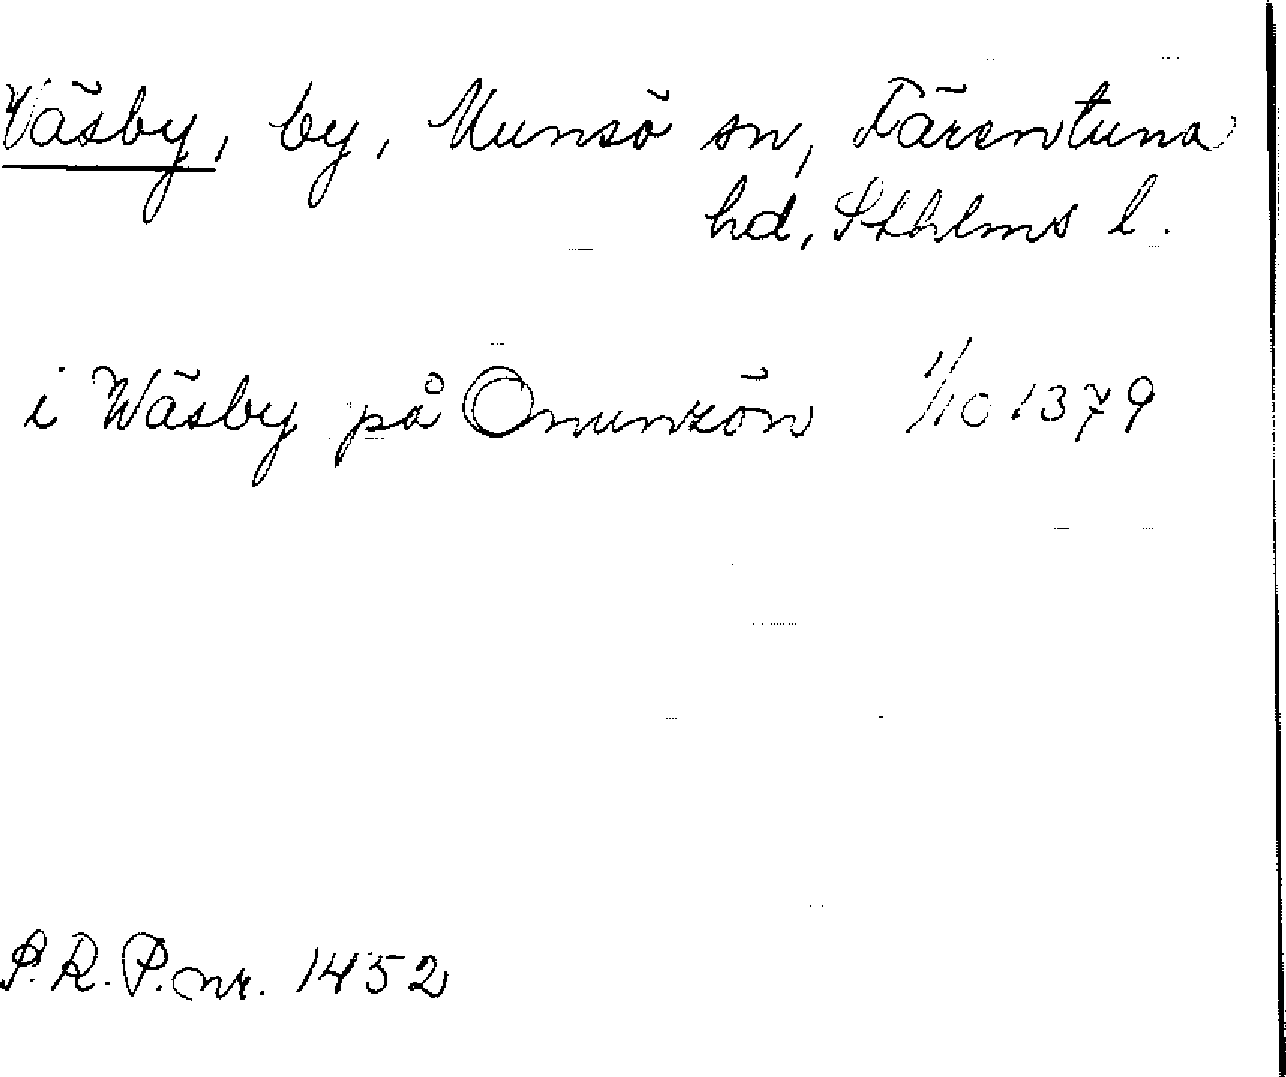 Väsby, by, Munsö sn, Färentuna
hd, Sthlms l.
i Wäsby på Omunzön 1/10 1379
S.R.P. nr. 1452